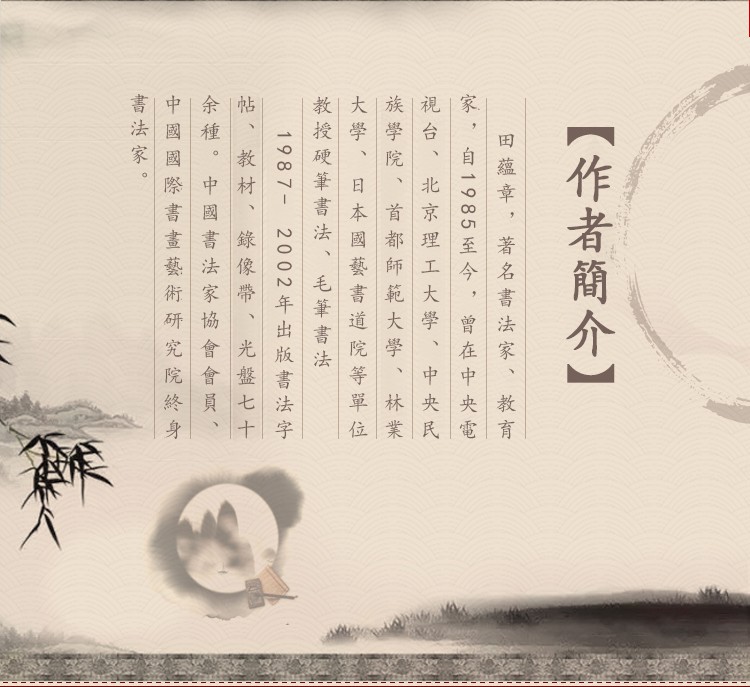 【作者簡介】
田蘊章，著名書法家、教育
家，自1985至今，曾在中央電
視台、北京理工大學、中央民
族學院、首都師範大學、林業
大學、日本國藝書道院等單位
教授硬筆書法、毛筆書法
1987- 2002年出版書法字
帖、教材、錄像帶、光盤七十
余種。中國書法家協會會員、
中國國際書畫藝術研究院終身
書法家。